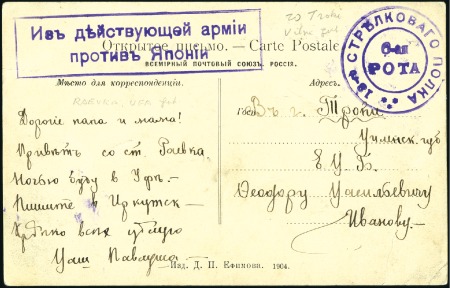 Изъ дѣйствующей арміи
противъ Японіи
Открытое письмо. — Carte Postale
ВСЕМІРНЫЙ ПОЧТОВЫЙ СОЮЗЪ. РОССІЯ.
СТРѢЛКОВАГО ПОЛКА
6-ая
РОТА
Мѣсто для корреспонденціи.
Адресъ.
RAEVKA, UFA gub
Дорогіе папа и мама!
Привѣтъ со ст. Раевка
Ночью буду в Уфѣ-
Пишите в Иркутск-
Крѣпко всех цѣлую
Ваш Павлуша
Въ г. Троки
Виленск. губ
Е. В. Б.
Ѳеодору Васильевичу
Иванову
Изд. Д. П. Ефимова. 1904.